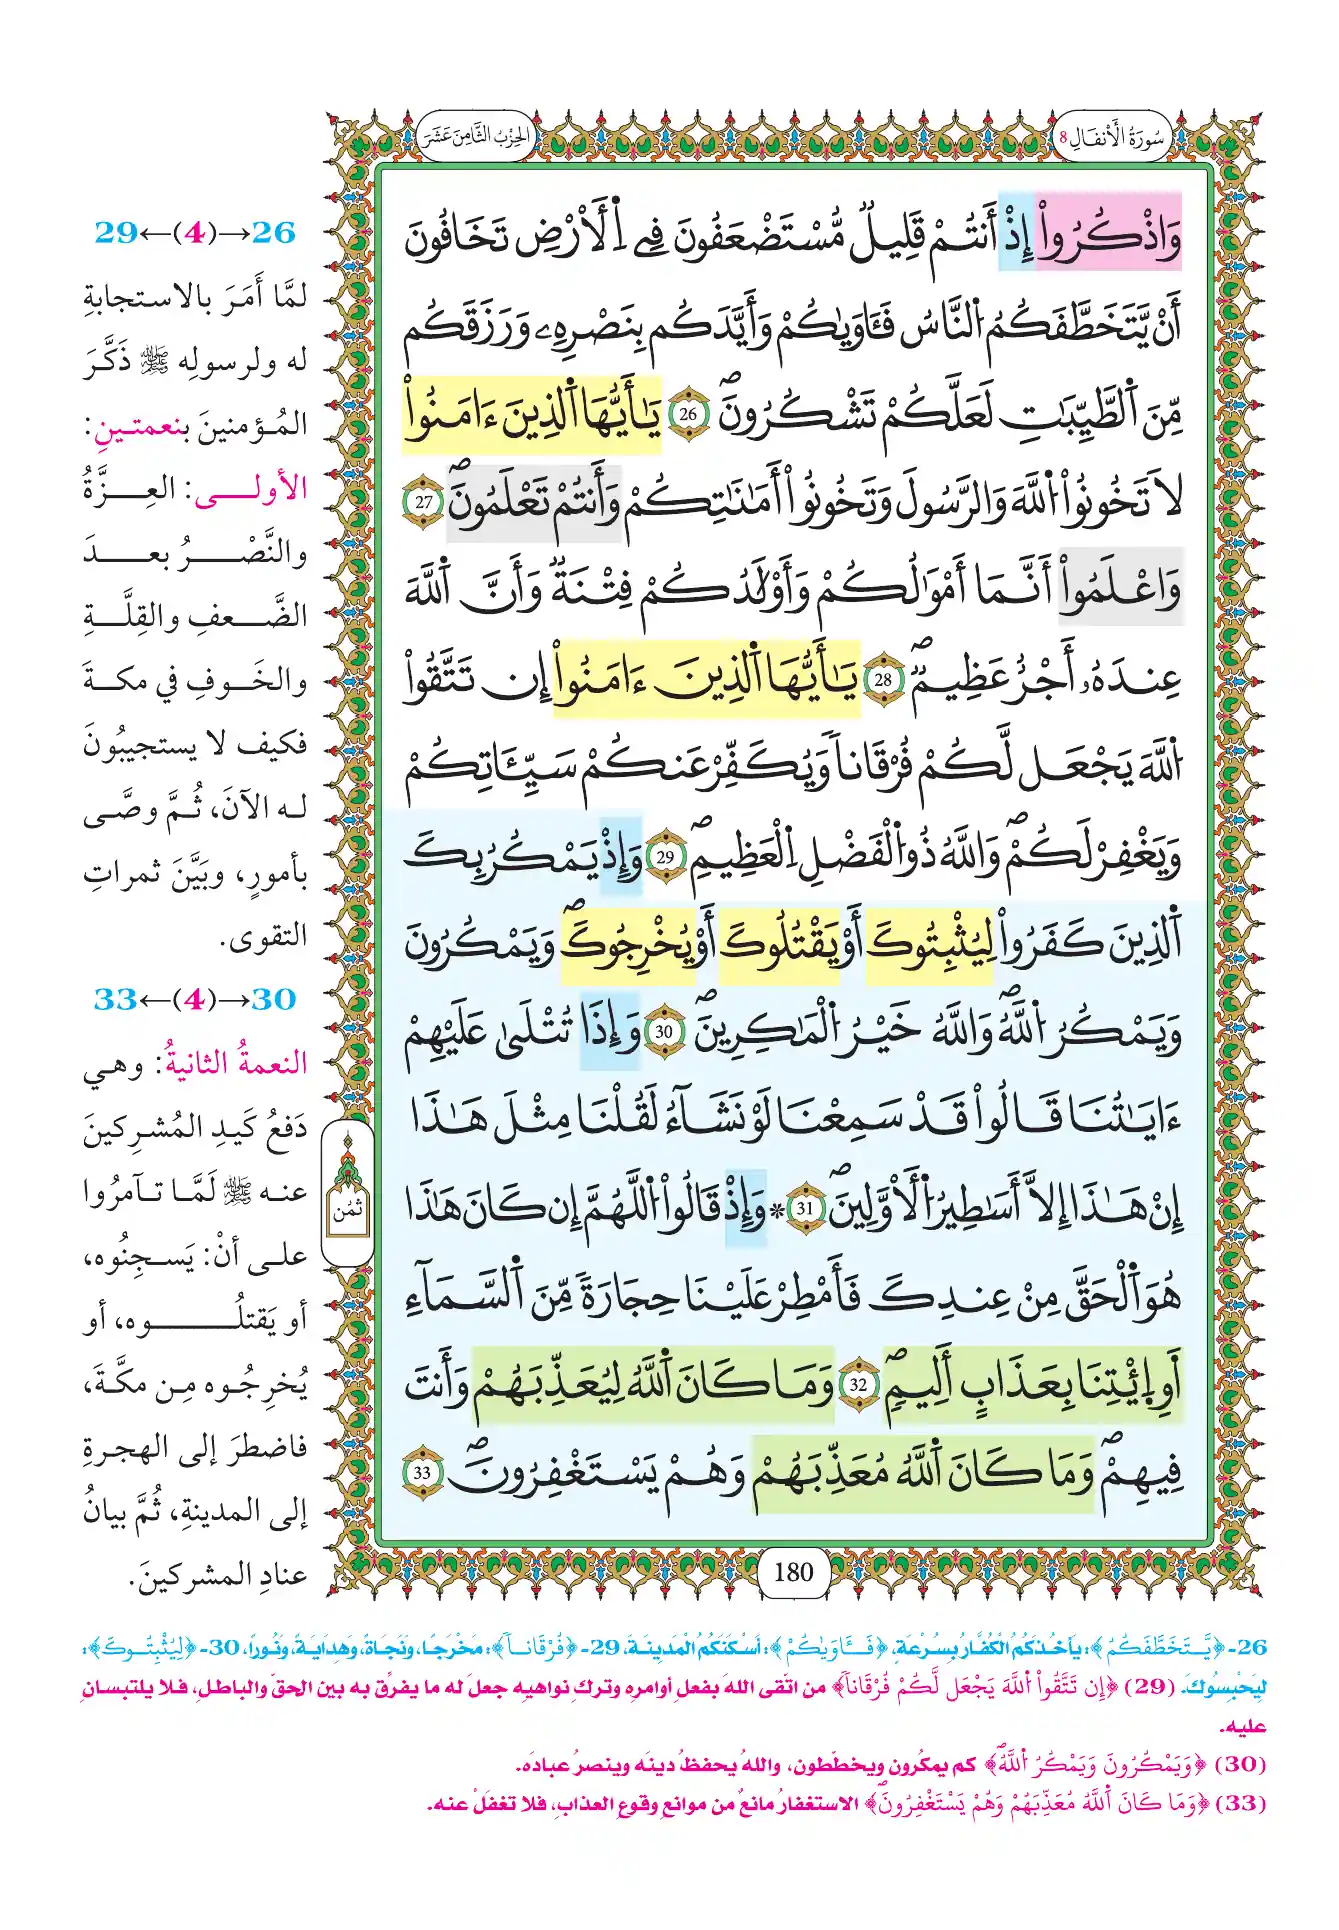 سُورَةُ الْأَنفَالِ 8
الحِزْبُ الثَّامِنَ عَشَرَ
وَاذْكُرُوٓاْ إِذْ أَنتُمْ قَلِيلٌ مُّسْتَضْعَفُونَ فِے اِ۬لَارْضِ تَخَافُونَ
أَنْ يَّتَخَطَّفَكُمُ اُ۬لنَّاسُ فَـَٔاو۪يٰكُمْ وَأَيَّدَكُم بِنَصْرِهِۦ وَرَزَقَكُم
مِّنَ اَ۬لطَّيِّبَٰتِ لَعَلَّكُمْ تَشْكُرُونَۖ 26 يَٰٓأَيُّهَا اَ۬لذِينَ ءَامَنُواْ
لَا تَخُونُواْ اُ۬للَّهَ وَالرَّسُولَ وَتَخُونُوٓاْ أَمَٰنَٰتِكُمْ وَأَنتُمْ تَعْلَمُونَۖ 27
وَاعْلَمُوٓاْ أَنَّمَآ أَمْوَٰلُكُمْ وَأَوْلَٰدُكُمْ فِتْنَةٌۖ وَأَنَّ اَ۬للَّهَ
عِندَهُۥٓ أَجْرٌ عَظِيمٌۖ 28 يَٰٓأَيُّهَا اَ۬لذِينَ ءَامَنُوٓاْ إِن تَتَّقُواْ
اُ۬للَّهَ يَجْعَل لَّكُمْ فُرْقَاناٗ وَيُكَفِّرْ عَنكُمْ سَيِّـَٔاتِكُمْ
وَيَغْفِرْ لَكُمْۖ وَاللَّهُ ذُو اُ۬لْفَضْلِ اِ۬لْعَظِيمِۖ 29 وَإِذْ يَمْكُرُ بِكَ
اَ۬لذِينَ كَفَرُواْ لِيُثْبِتُوكَ أَوْ يَقْتُلُوكَ أَوْ يُخْرِجُوكَۖ وَيَمْكُرُونَ
وَيَمْكُرُ اُ۬للَّهُۖ وَاللَّهُ خَيْرُ اُ۬لْمَٰكِرِينَۖ 30 وَإِذَا تُتْلَىٰ عَلَيْهِمْ
ءَايَٰتُنَا قَالُواْ قَدْ سَمِعْنَا لَوْ نَشَآءُ لَقُلْنَا مِثْلَ هَٰذَآ
إِنْ هَٰذَآ إِلَّآ أَسَٰطِيرُ اُ۬لَاوَّلِينَۖ 31 * وَإِذْ قَالُواْ اُ۬للَّهُمَّ إِن كَانَ هَٰذَا
هُوَ اَ۬لْحَقَّ مِنْ عِندِكَ فَأَمْطِرْ عَلَيْنَا حِجَارَةٗ مِّنَ اَ۬لسَّمَآءِ
اَ۬وِ اِ۪يتِنَا بِعَذَابٍ أَلِيمٖۖ 32 وَمَا كَانَ اَ۬للَّهُ لِيُعَذِّبَهُمْ وَأَنتَ
فِيهِمْۖ وَمَا كَانَ اَ۬للَّهُ مُعَذِّبَهُمْ وَهُمْ يَسْتَغْفِرُونَۖ 33
ثُمُن
180
26→(4)←29
لمَّا أَمَرَ بالاستجابةِ
له ولرسولِه ﷺ ذَكَّرَ
المُؤمنينَ بنعمتينِ:
الأولى: العِزَّةُ
والنَّصْرُ بعدَ
الضَّعفِ والقِلَّةِ
والخَوفِ في مكةَ
فكيف لا يستجيبُونَ
له الآنَ، ثُمَّ وصَّى
بأمورٍ، وبَيَّنَ ثمراتِ
التقوى.
30→(4)←33
النعمةُ الثانيةُ: وهي
دَفعُ كَيدِ المُشركينَ
عنه ﷺ لَمَّا تآمرُوا
على أنْ: يَسجِنُوه،
أو يَقتلُوه، أو
يُخرِجُوه مِن مكَّةَ،
فاضطرَ إلى الهجرةِ
إلى المدينةِ، ثُمَّ بيانُ
عنادِ المشركينَ.
26- ﴿يَّتَخَطَّفَكُمُ﴾: يَأخُذَكُمُ الْكُفَّارُ بِسُرْعَةٍ، ﴿فَـَٔاو۪يٰكُمْ﴾: أسْكَنَكُمُ الْمَدِينَةَ، 29- ﴿فُرْقَاناٗ﴾: مَخْرَجًا، وَنَجَاةً، وَهِدَايَةً، وَنُورًا، 30- ﴿لِيُثْبِتُوكَ﴾:
لِيَحْبِسُوكَ. (29) ﴿إِن تَتَّقُواْ اُ۬للَّهَ يَجْعَل لَّكُمْ فُرْقَاناٗ﴾ من اتَّقى اللهَ بفعلِ أوامرِه وتركِ نواهيِه جعلَ له ما يفرقُ به بين الحقِّ والباطلِ، فلا يلتبسانِ
عليه.
(30) ﴿وَيَمْكُرُونَ وَيَمْكُرُ اُ۬للَّهُۖ﴾ كم يمكُرون ويخطِّطون، واللهُ يحفظُ دينَه وينصرُ عبادَه.
(33) ﴿وَمَا كَانَ اَ۬للَّهُ مُعَذِّبَهُمْ وَهُمْ يَسْتَغْفِرُونَۖ﴾ الاستغفارُ مانعٌ من موانعِ وقوعِ العذابِ، فلا تغفلْ عنه.